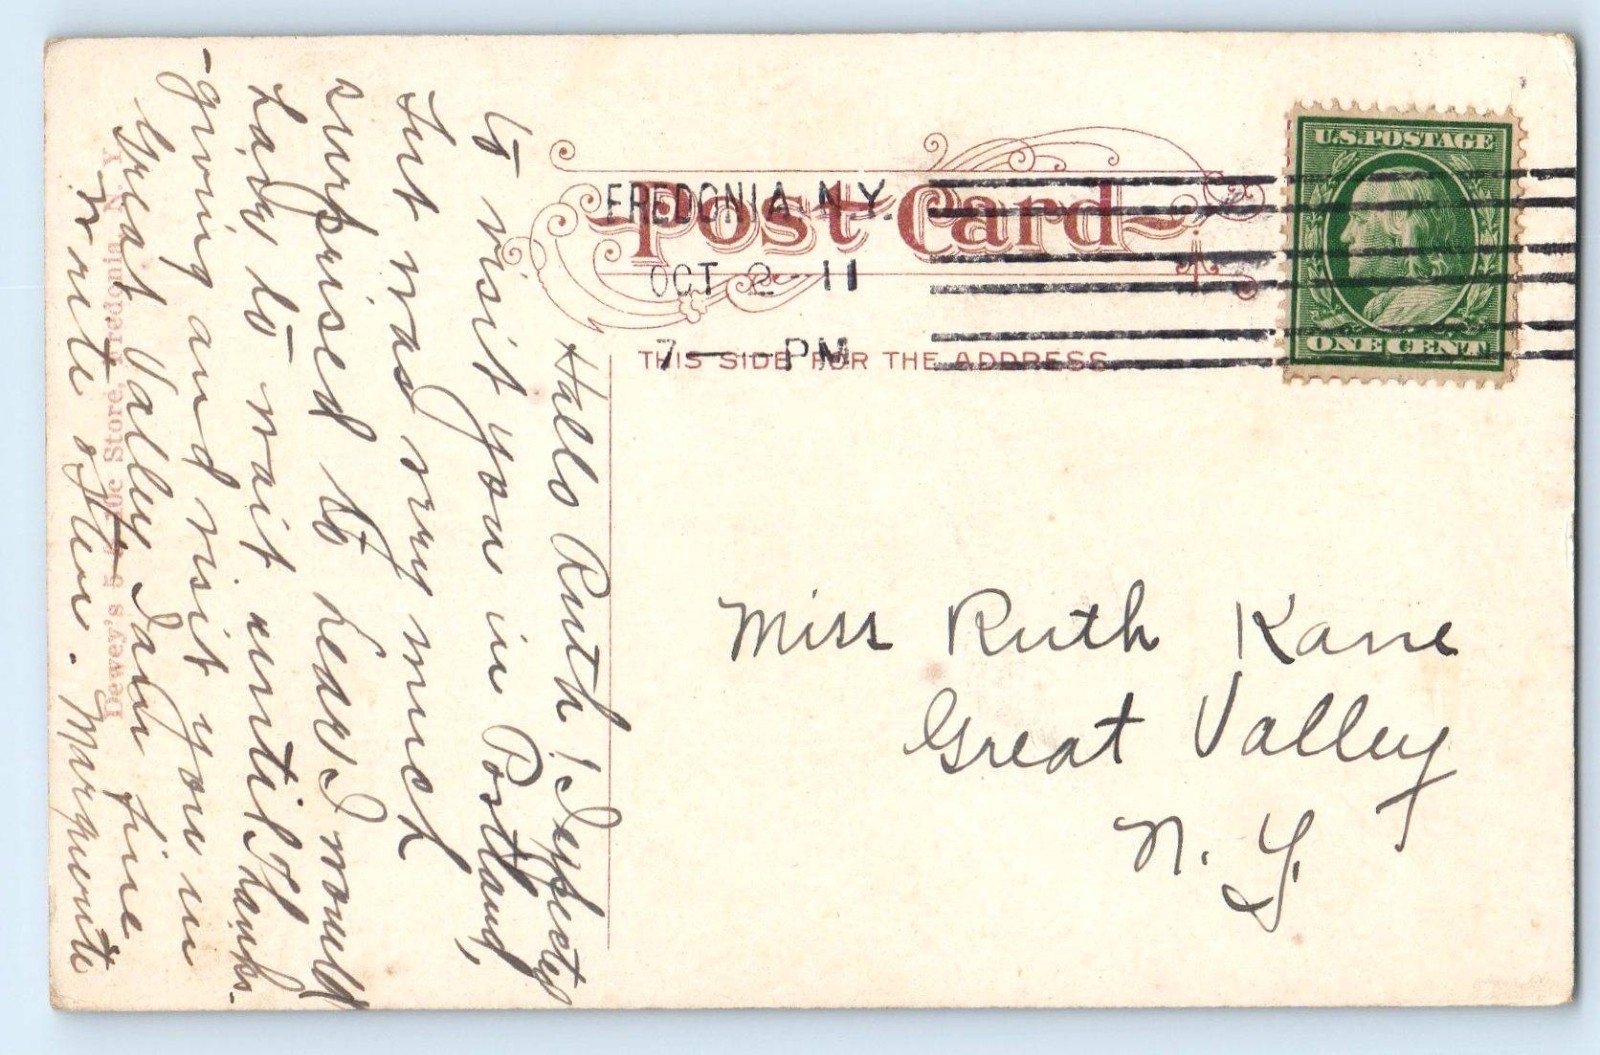 Post Card
FREDONIA N.Y.
OCT 2 - 11
7 - PM
THIS SIDE FOR THE ADDRESS
U.S. POSTAGE
ONE CENT
Hallo Ruth! I expected
to visit you in Portland,
but was very much
surprised to hear I would
have to wait until Thanks-
-giving and visit you in
Great Valley. I am fine
Write often. Marguerite
Dewey's 5 & 10c Store, Fredonia, N. Y.
Miss Ruth Kane
Great Valley
N. Y.